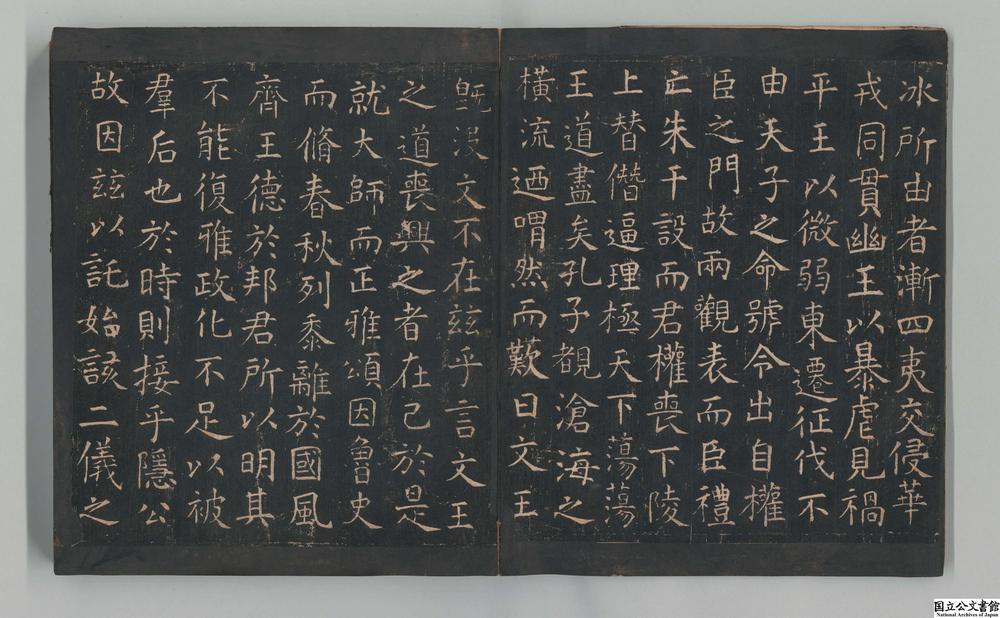 冰所由者漸四夷交侵華
戎同貫幽王以暴虐見禍
平王以微弱東遷征伐不
由天子之命號令出自權
臣之門故兩觀表而臣禮
亡朱干設而君權喪下陵
上替僭逼理極天下蕩蕩
王道盡矣孔子覩滄海之
橫流迺喟然而歎曰文王
旣沒文不在茲乎言文王
之道喪興之者在己於是
就大師而正雅頌因魯史
而脩春秋列黍離於國風
齊王德於邦君所以明其
不能復雅政化不足以被
羣后也於時則接乎隱公
故因茲以託始該二儀之
国立公文書館
National Archives of Japan